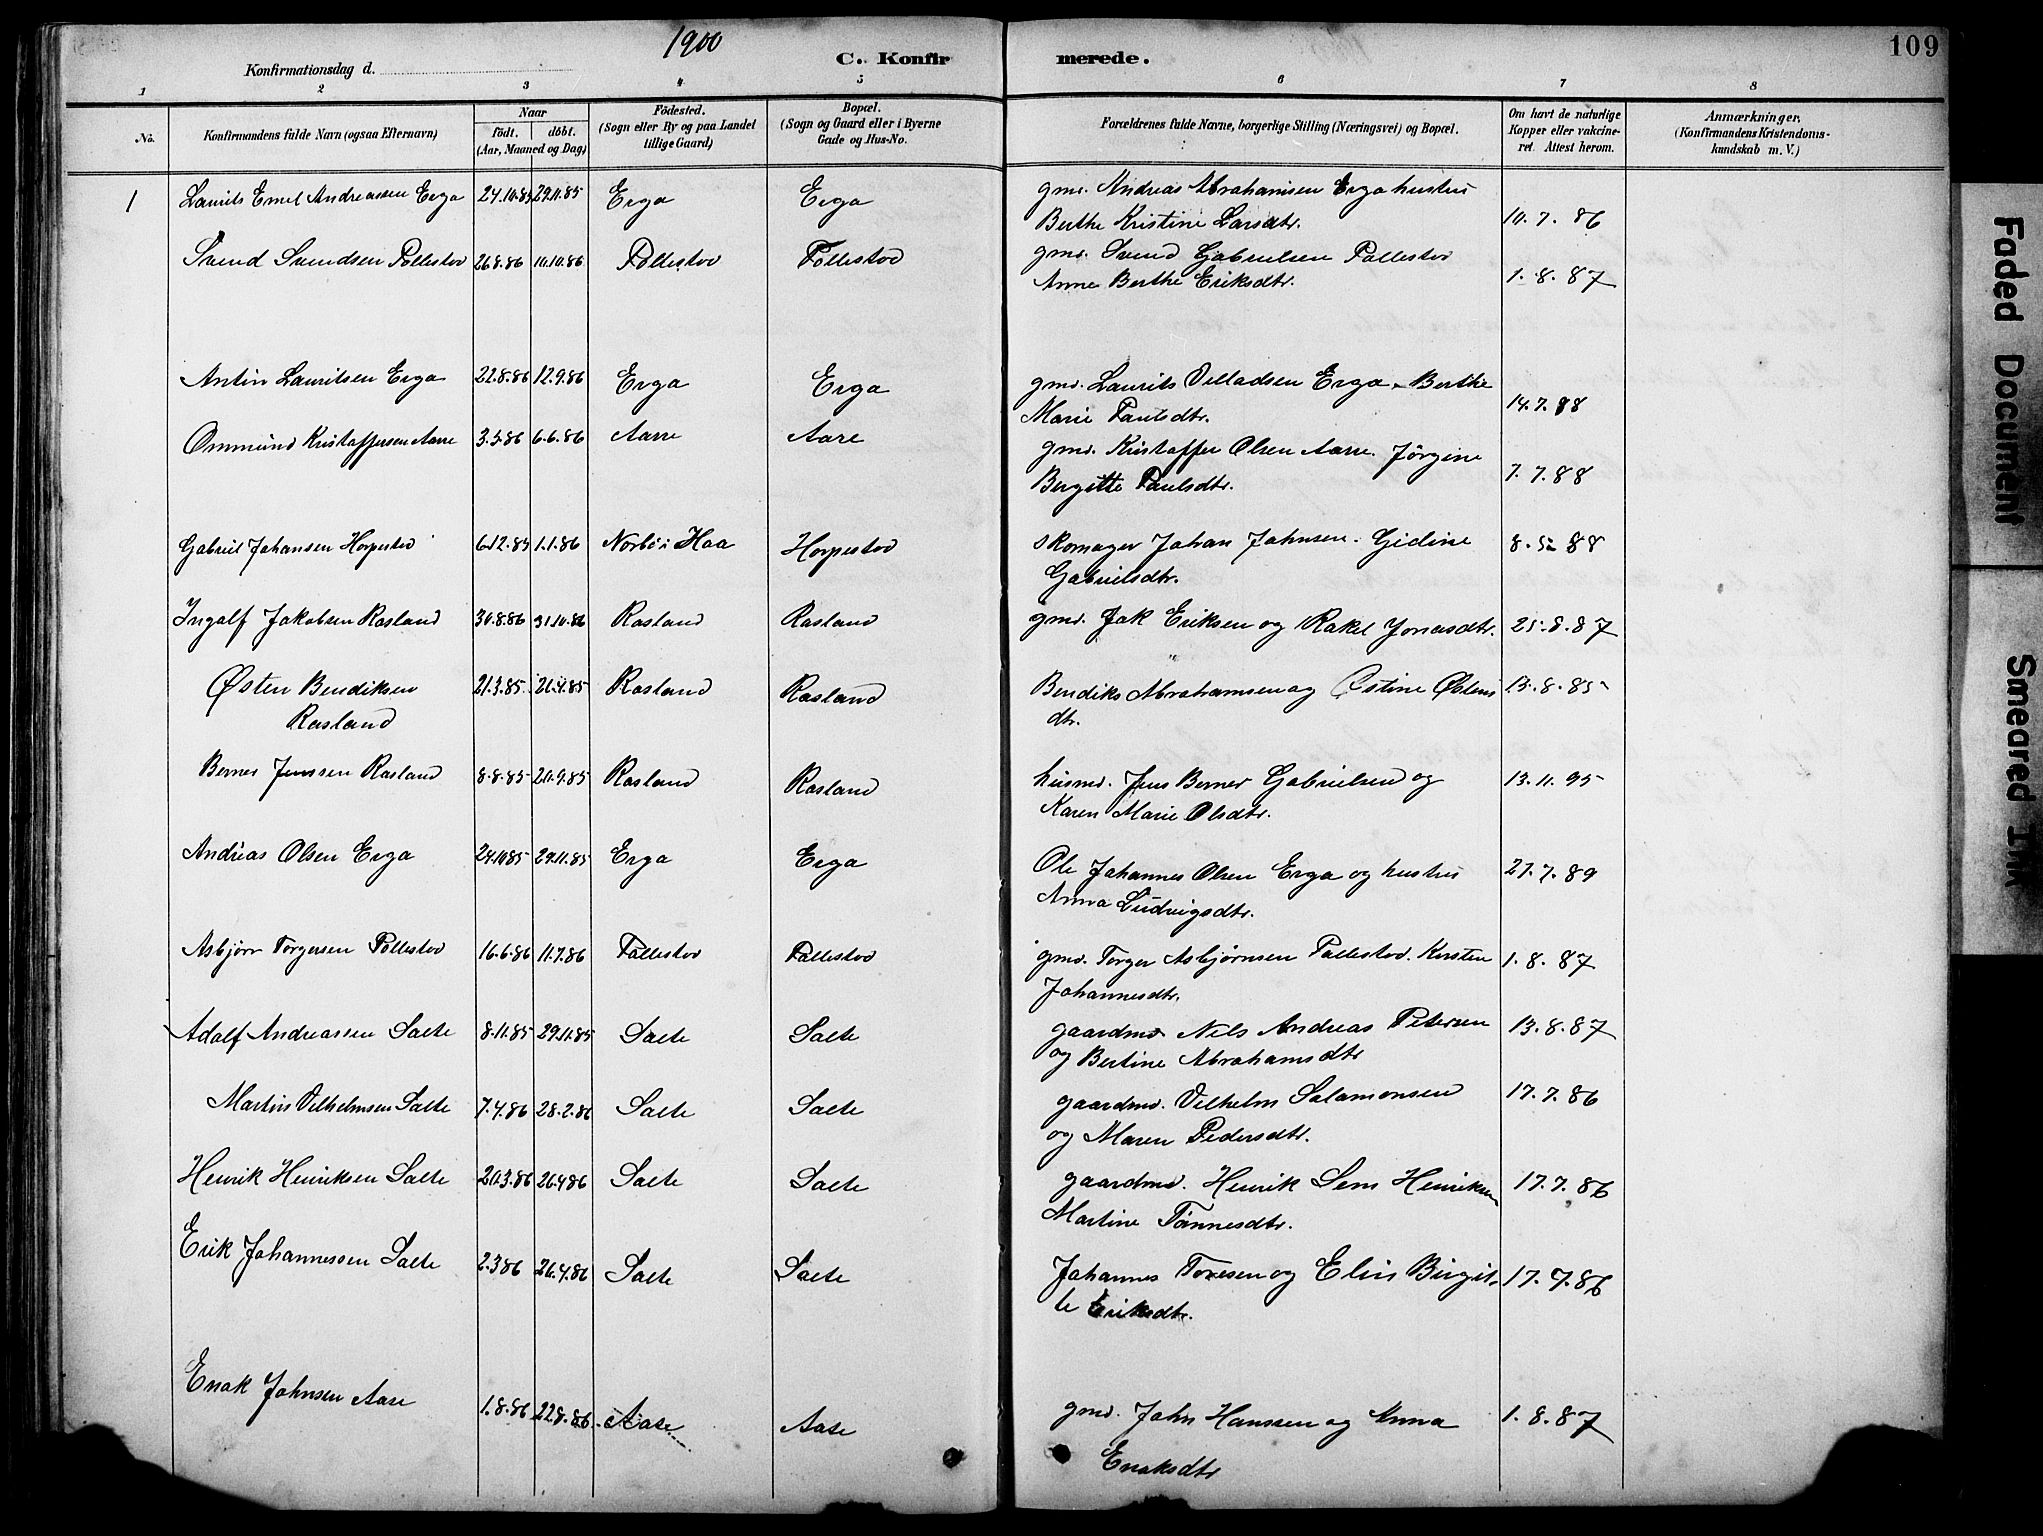 1900
109
Konfirmationsdag d.
C. Konfirmerede.
1 2 3 4 5 6 7 8
No.
Konfirmandens fulde Navn (ogsaa Efternavn)
Naar
födt. döbt.
(Aar, Maaned og Dag)
Födested.
(Sogn eller By og paa Landet
tillige Gaard)
Bopæl.
(Sogn og Gaard eller i Byerne
Gade og Hus-No.
Forældrenes fulde Navne, borgerlige Stilling (Næringsvei) og Bopæl.
Om havt de naturlige
Kopper eller vakcine-
ret. Attest herom.
Anmærkninger.
(Konfirmandens Kristendoms-
kundskab m. V.)
1 Laurits Emel Andreassen Erga 24.10.85 29.11.85 Erga Erga gmd. Andreas Abrahamsen Erga hustru
Berthe Kristine Larsdtr. 10.7.86
Svend Svendsen Pollestad 26.8.86 10.10.86 Pollestad Pollestad gmd. Svend Gabrielsen Pollestad
Anne Berthe Eriksdtr. 1.8.87
Antin Lauritsen Erga 22.8.86 12.9.86 Erga Erga gmd. Laurits Villadsen Erga. Berthe
Marie Paulsdtr. 14.7.88
Ommund Kristaffersen Aarre 3.5.86 6.6.86 Aarre Aare gmd. Kristaffer Olsen Aarre. Jörgine
Bergitte Paulsdtr. 7.7.88
Gabriel Johansen Horpestad 6.12.85 1.1.86 Norbö i Haa Horpestad skomager Johan Johnsen. Gidine
Gabrielsdtr. 8.5.88
Ingolf Jakobsen Rosland 30.8.86 31.10.86 Rosland Rosland gmd. Jak Eriksen og Rakel Jonasdtr. 25.8.87
Østen Bendiksen
Rosland 21.3.85 26.4.85 Rosland Rosland Bendiks Abrahamsen og Østine Østens
dtr. 13.8.85
Berner Jenssen Rosland 8.8.85 20.9.85 Rosland Rosland husmd. Jens Berner Gabrielsen og
Karen Marie Olsdtr. 13.11.95
Andreas Olsen Erga 24.10.85 29.11.85 Erga Erga Ole Johannes Olsen Erga og hustru
Anna Ludvigsdtr. 27.7.89
Asbjörn Torgersen Pollestad 16.6.86 11.7.86 Pollestad Pollestad gmd. Torger Asbjörnsen Pollestad. Kirsten
Johannesdtr. 1.8.87
Adolf Andreassen Salte 8.11.85 29.11.85 Salte Salte gaardmd Nels Andreas Petersen
og Bertine Abrahamsdtr 13.8.87
Martin Vilhelmsen Salte 7.4.86 28.2.86 Salte Salte gaardmd. Vilhelm Salamonsen
og Maren Pedersdtr. 17.7.86
Henrik Henriksen Salte 20.3.86 26.4.86 Salte Salte gaardmd. Henrik Sem Henriksen
Martine Tönnesdtr. 17.7.86
Erik Johannessen Salte 2.3.86 26.4.86 Salte Salte Johannes Toresen og Elin Birgit-
te Eriksdtr. 17.7.86
Enok Johnsen Aase 1.8.86 22.8.86 Aase Aase gmd. John Hanssen og Anna
Enoksdtr 1.8.87
Faded Document
Smeared Ink